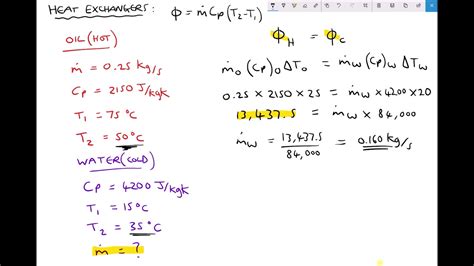 HEAT EXCHANGERS: Φ = ṁCp(T₂-T₁)
OIL (HOT)
ṁ = 0.25 kg/s
Cp = 2150 J/kgK
T₁ = 75°C
T₂ = 50°C
WATER (COLD)
Cp = 4200 J/kgK
T₁ = 15°C
T₂ = 35°C
ṁ = ?
Φ_H = Φ_C
ṁ_O (Cp)_O ΔT_O = ṁ_W (Cp)_W ΔT_W
0.25 × 2150 × 25 = ṁ_W × 4200 × 20
13,437.5 = ṁ_W × 84,000
ṁ_W = 13,437.5 / 84,000 = 0.160 kg/s